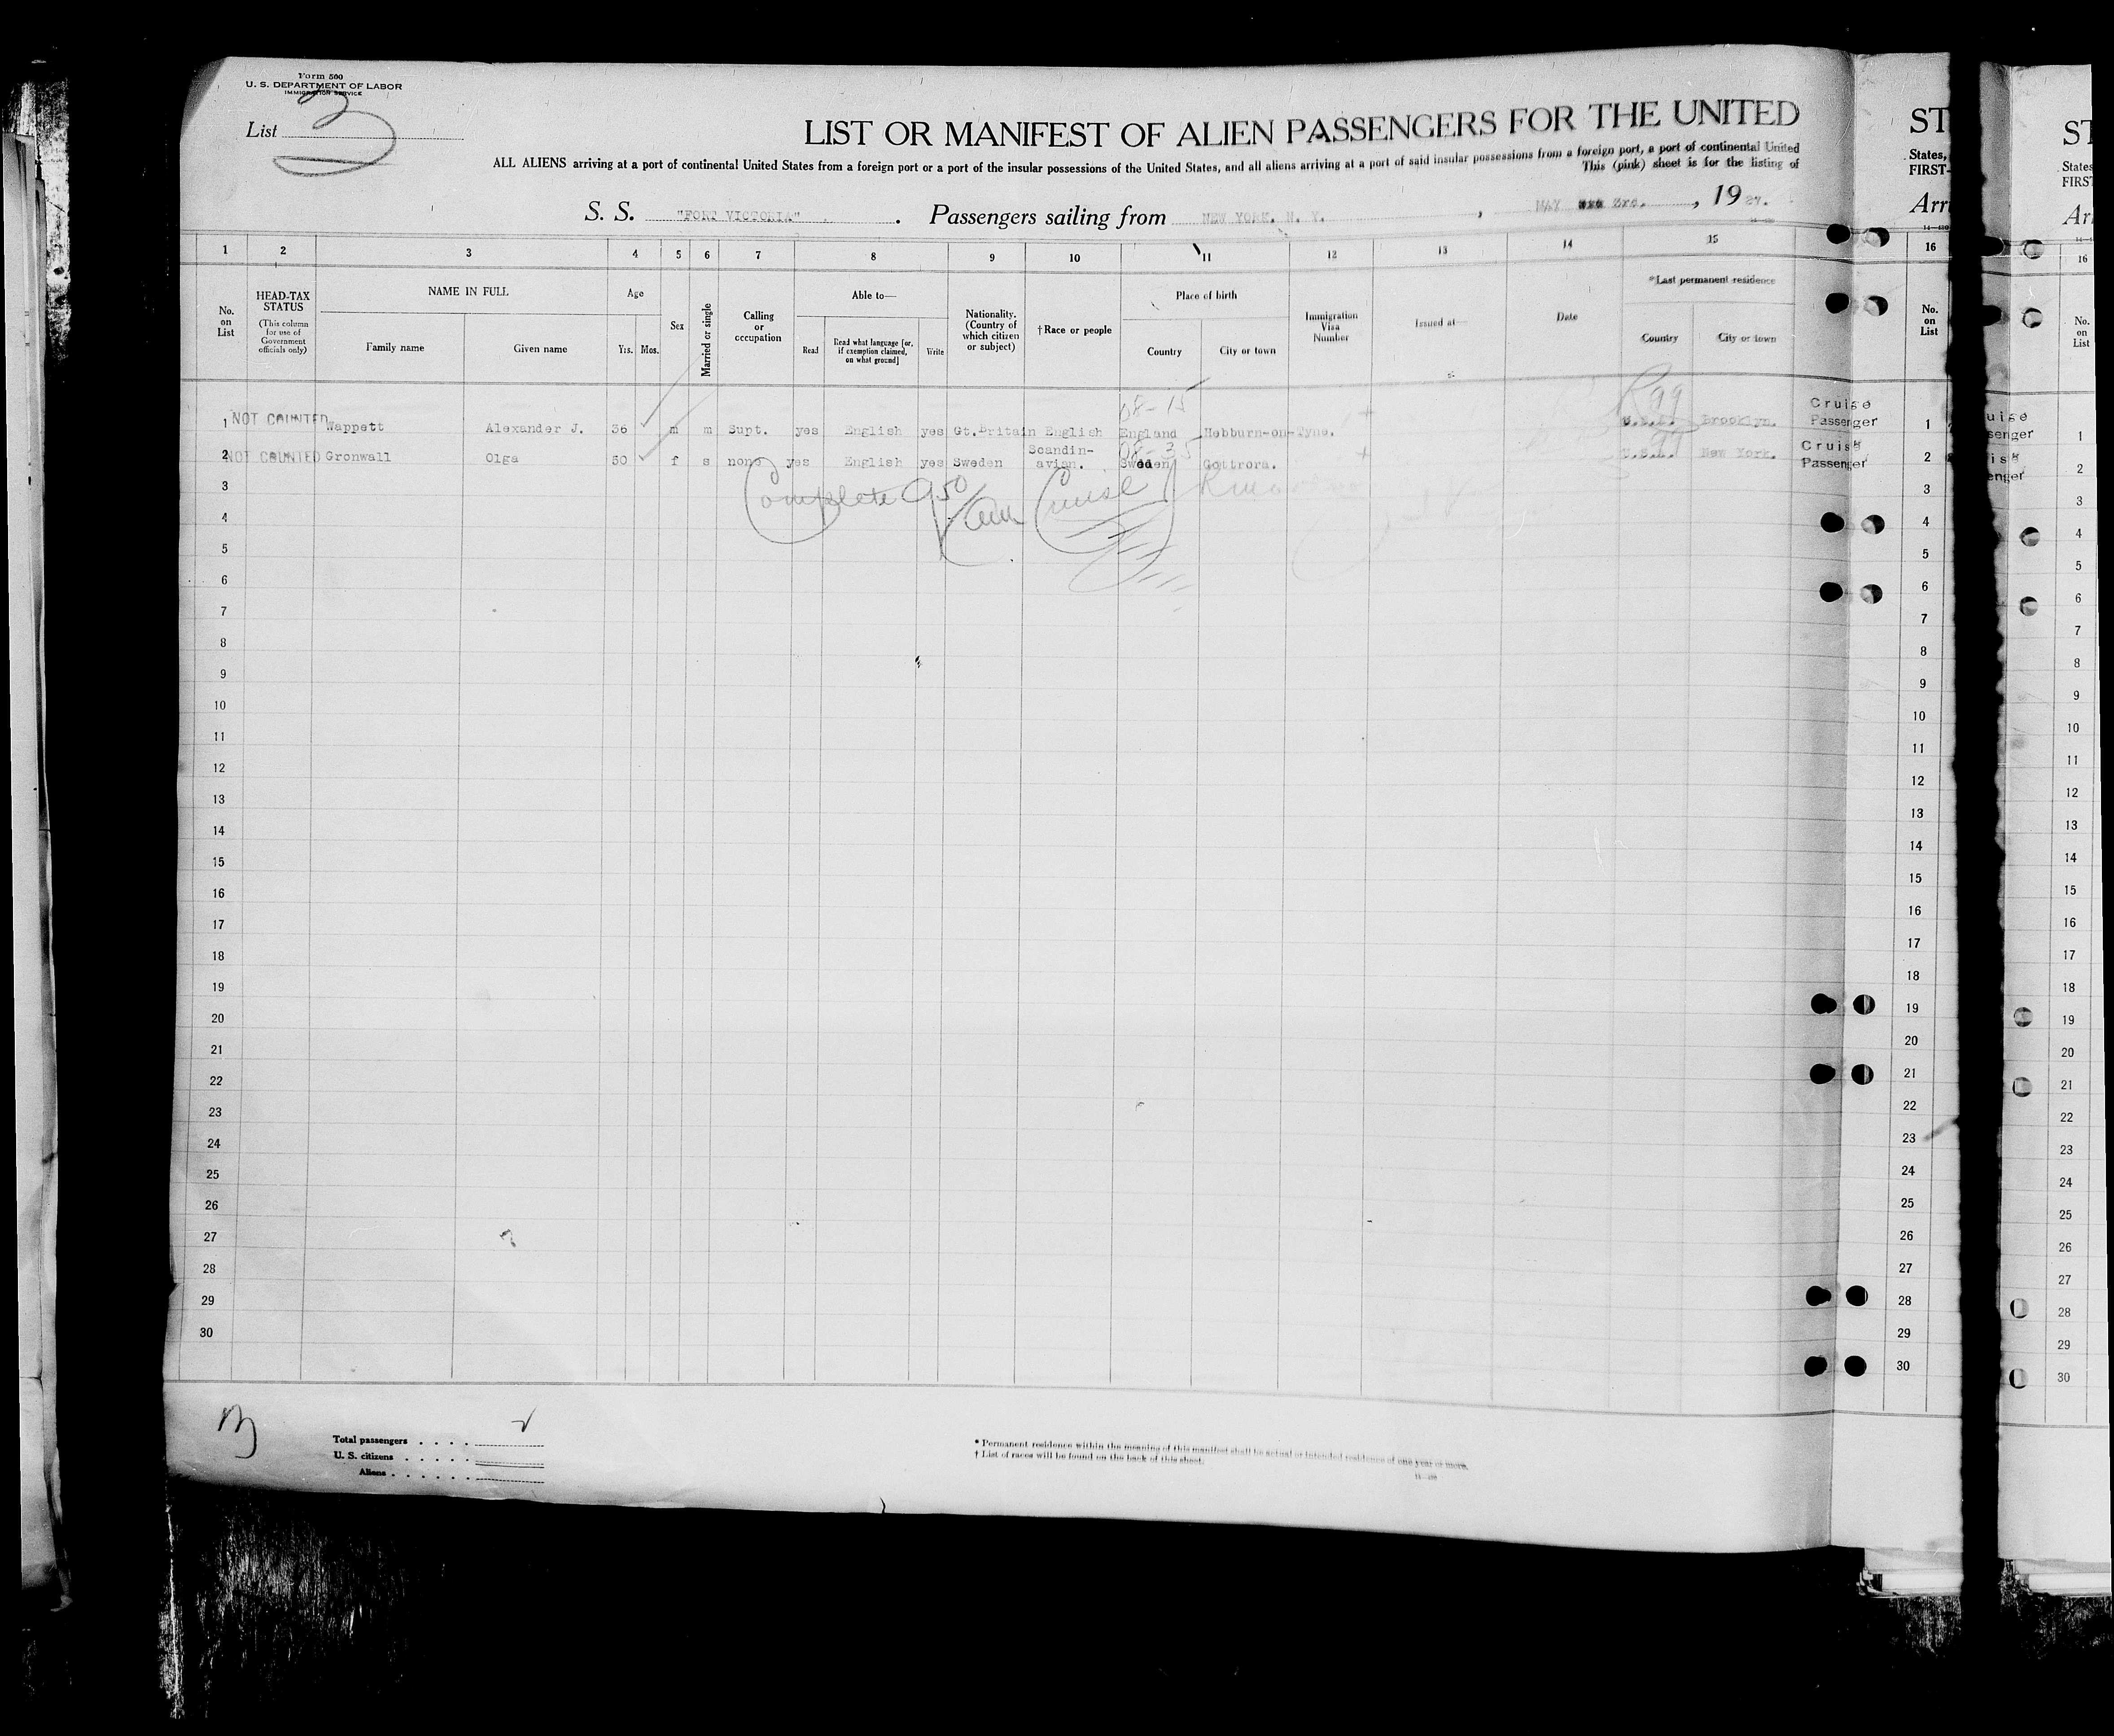 Form 500
U. S. DEPARTMENT OF LABOR
IMMIGRATION SERVICE
List 3
LIST OR MANIFEST OF ALIEN PASSENGERS FOR THE UNITED
ALL ALIENS arriving at a port of continental United States from a foreign port or a port of the insular possessions of the United States, and all aliens arriving at a port of said insular possessions from a foreign port, a port of continental United
This (pink) sheet is for the listing of
S. S. "FORT VICTORIA" . Passengers sailing from NEW YORK. N. Y. , MAY 3rd. , 19 27.
1 2 3 4 5 6 7 8 9 10 11 12 13 14 15
No. on List
HEAD-TAX STATUS
(This column for use of Government officials only)
NAME IN FULL
Family name
Given name
Age
Yrs. Mos.
Sex
Married or single
Calling or occupation
Able to—
Read
Read what language [or, if exemption claimed, on what ground]
Write
Nationality. (Country of which citizen or subject)
†Race or people
Place of birth
Country
City or town
Immigration Visa Number
Issued at—
Date
*Last permanent residence
Country
City or town
08-15 99
1 NOT COUNTED Wappett Alexander J. 36 m m Supt. yes English yes Gt.Britain English England Hebburn-on-Tyne. U.S.A. Brooklyn. Cruise Passenger
08-35 99
2 NOT COUNTED Gronwall Olga 50 f s none yes English yes Sweden Scandin-avian. Sweden Gottrora. U.S.A. New York. Cruise Passenger
Complete Cruise
3
4
5
6
7
8
9
10
11
12
13
14
15
16
17
18
19
20
21
22
23
24
25
26
27
28
29
30
3
Total passengers . . . . 2
U. S. citizens . . . . .
Aliens . . . . . .
* Permanent residence within the meaning of this manifest shall be actual or intended residence of one year or more.
† List of races will be found on the back of this sheet.
ST
States,
FIRST-
Arri
16
No. on List
1
2
3
4
5
6
7
8
9
10
11
12
13
14
15
16
17
18
19
20
21
22
23
24
25
26
27
28
29
30
ST
States
FIRST
Ar
16
No. on List
1
2
3
4
5
6
7
8
9
10
11
12
13
14
15
16
17
18
19
20
21
22
23
24
25
26
27
28
29
30